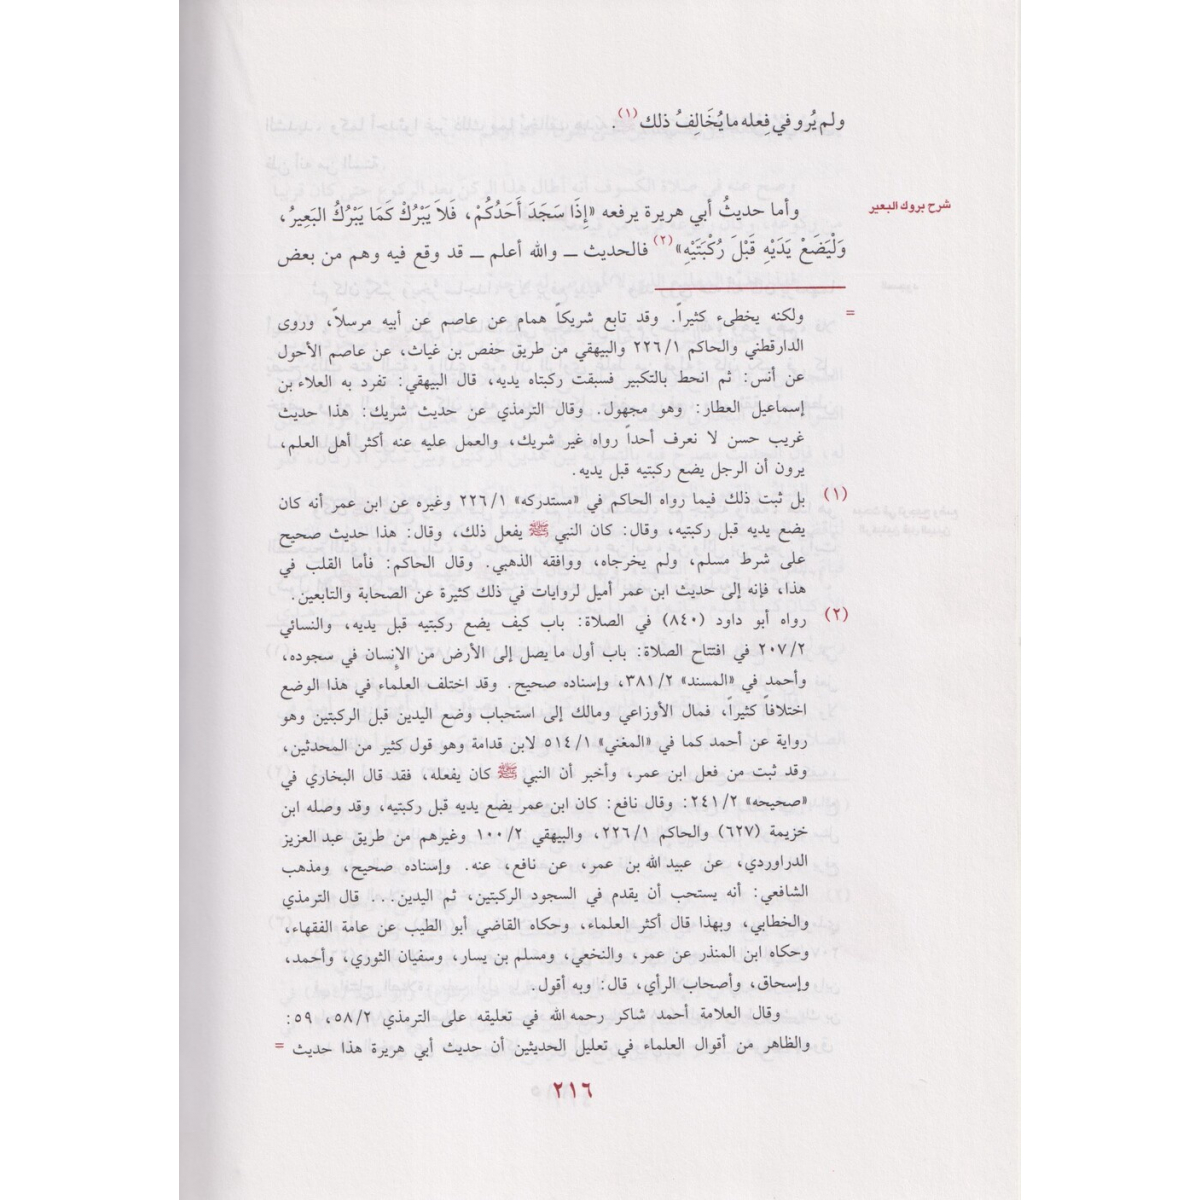 ولم يُرو في فِعله ما يُخَالِفُ ذلك (١) .
شرح بروك البعير
وأما حديثُ أبي هريرة يرفعه «إِذَا سَجَدَ أَحَدُكُمْ، فَلاَ يَبْرُكْ كَمَا يَبْرُكُ البَعِيرُ،
وَلْيَضَعْ يَدَيْهِ قَبْلَ رُكْبَتَيْهِ» (٢) فالحديث ــ والله أعلم ــ قد وقع فيه وهم من بعض
= ولكنه يخطىء كثيراً. وقد تابع شريكاً همام عن عاصم عن أبيه مرسلاً، وروى
الدارقطني والحاكم ٢٢٦/١ والبيهقي من طريق حفص بن غياث، عن عاصم الأحول
عن أنس: ثم انحط بالتكبير فسبقت ركبتاه يديه، قال البيهقي: تفرد به العلاء بن
إسماعيل العطار: وهو مجهول. وقال الترمذي عن حديث شريك: هذا حديث
غريب حسن لا نعرف أحداً رواه غير شريك، والعمل عليه عنه أكثر أهل العلم،
يرون أن الرجل يضع ركبتيه قبل يديه.
(١) بل ثبت ذلك فيما رواه الحاكم في «مستدركه» ٢٢٦/١ وغيره عن ابن عمر أنه كان
يضع يديه قبل ركبتيه، وقال: كان النبي ﷺ يفعل ذلك، وقال: هذا حديث صحيح
على شرط مسلم، ولم يخرجاه، ووافقه الذهبي. وقال الحاكم: فأما القلب في
هذا، فإنه إلى حديث ابن عمر أميل لروايات في ذلك كثيرة عن الصحابة والتابعين.
(٢) رواه أبو داود (٨٤٠) في الصلاة: باب كيف يضع ركبتيه قبل يديه، والنسائي
٢٠٧/٢ في افتتاح الصلاة: باب أول ما يصل إلى الأرض من الإنسان في سجوده،
وأحمد في «المسند» ٣٨١/٢، وإسناده صحيح. وقد اختلف العلماء في هذا الوضع
اختلافاً كثيراً، فمال الأوزاعي ومالك إلى استحباب وضع اليدين قبل الركبتين وهو
رواية عن أحمد كما في «المغني» ٥١٤/١ لابن قدامة وهو قول كثير من المحدثين،
وقد ثبت من فعل ابن عمر، وأخبر أن النبي ﷺ كان يفعله، فقد قال البخاري في
«صحيحه» ٢٤١/٢: وقال نافع: كان ابن عمر يضع يديه قبل ركبتيه، وقد وصله ابن
خزيمة (٦٢٧) والحاكم ٢٢٦/١، والبيهقي ١٠٠/٢ وغيرهم من طريق عبد العزيز
الدراوردي، عن عبيد الله بن عمر، عن نافع، عنه. وإسناده صحيح، ومذهب
الشافعي: أنه يستحب أن يقدم في السجود الركبتين، ثم اليدين... قال الترمذي
والخطابي، وبهذا قال أكثر العلماء، وحكاه القاضي أبو الطيب عن عامة الفقهاء،
وحكاه ابن المنذر عن عمر، والنخعي، ومسلم بن يسار، وسفيان الثوري، وأحمد،
وإسحاق، وأصحاب الرأي، قال: وبه أقول.
وقال العلامة أحمد شاكر رحمه الله في تعليقه على الترمذي ٥٨/٢، ٥٩:
والظاهر من أقوال العلماء في تعليل الحديثين أن حديث أبي هريرة هذا حديث =
٢١٦